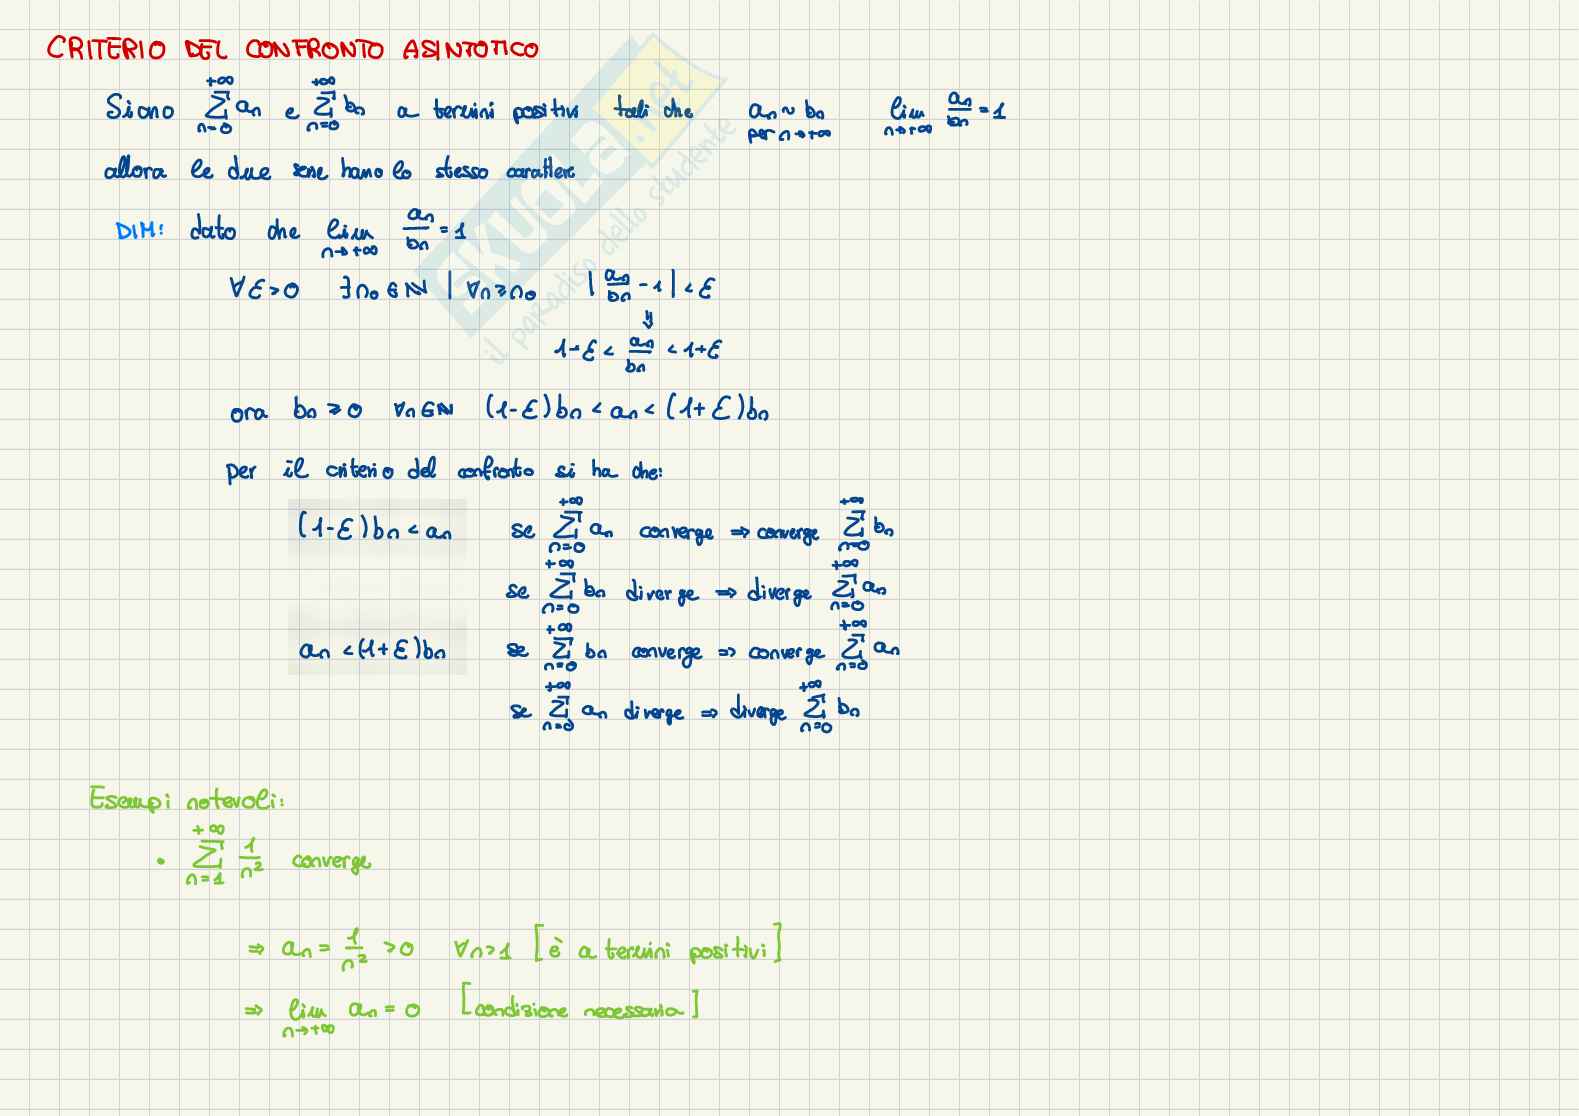 CRITERIO DEL CONFRONTO ASINTOTICO
Siano +∞ ∑ n=0 an e +∞ ∑ n=0 bn a termini positivi tali che an ~ bn per n→+∞ lim n→+∞ an/bn = 1
allora le due serie hano lo stesso carattere
DIM: dato che lim n→+∞ an/bn = 1
∀ε>0 ∃n₀∈ℕ | ∀n≥n₀ |an/bn - 1| < ε
⇓
1-ε < an/bn < 1+ε
ora bn ≥ 0 ∀n∈ℕ (1-ε)bn < an < (1+ε)bn
per il criterio del confronto si ha che:
(1-ε)bn < an se +∞ ∑ n=0 an converge ⇒ converge +∞ ∑ n=0 bn
se +∞ ∑ n=0 bn diverge ⇒ diverge +∞ ∑ n=0 an
an < (1+ε)bn se +∞ ∑ n=0 bn converge ⇒ converge +∞ ∑ n=0 an
se +∞ ∑ n=0 an diverge ⇒ diverge +∞ ∑ n=0 bn
Esempi notevoli:
• +∞ ∑ n=1 1/n² converge
⇒ an = 1/n² > 0 ∀n>1 [è a termini positivi]
⇒ lim n→+∞ an = 0 [condizione necessaria]
SKUOLA.net
il paradiso dello studente